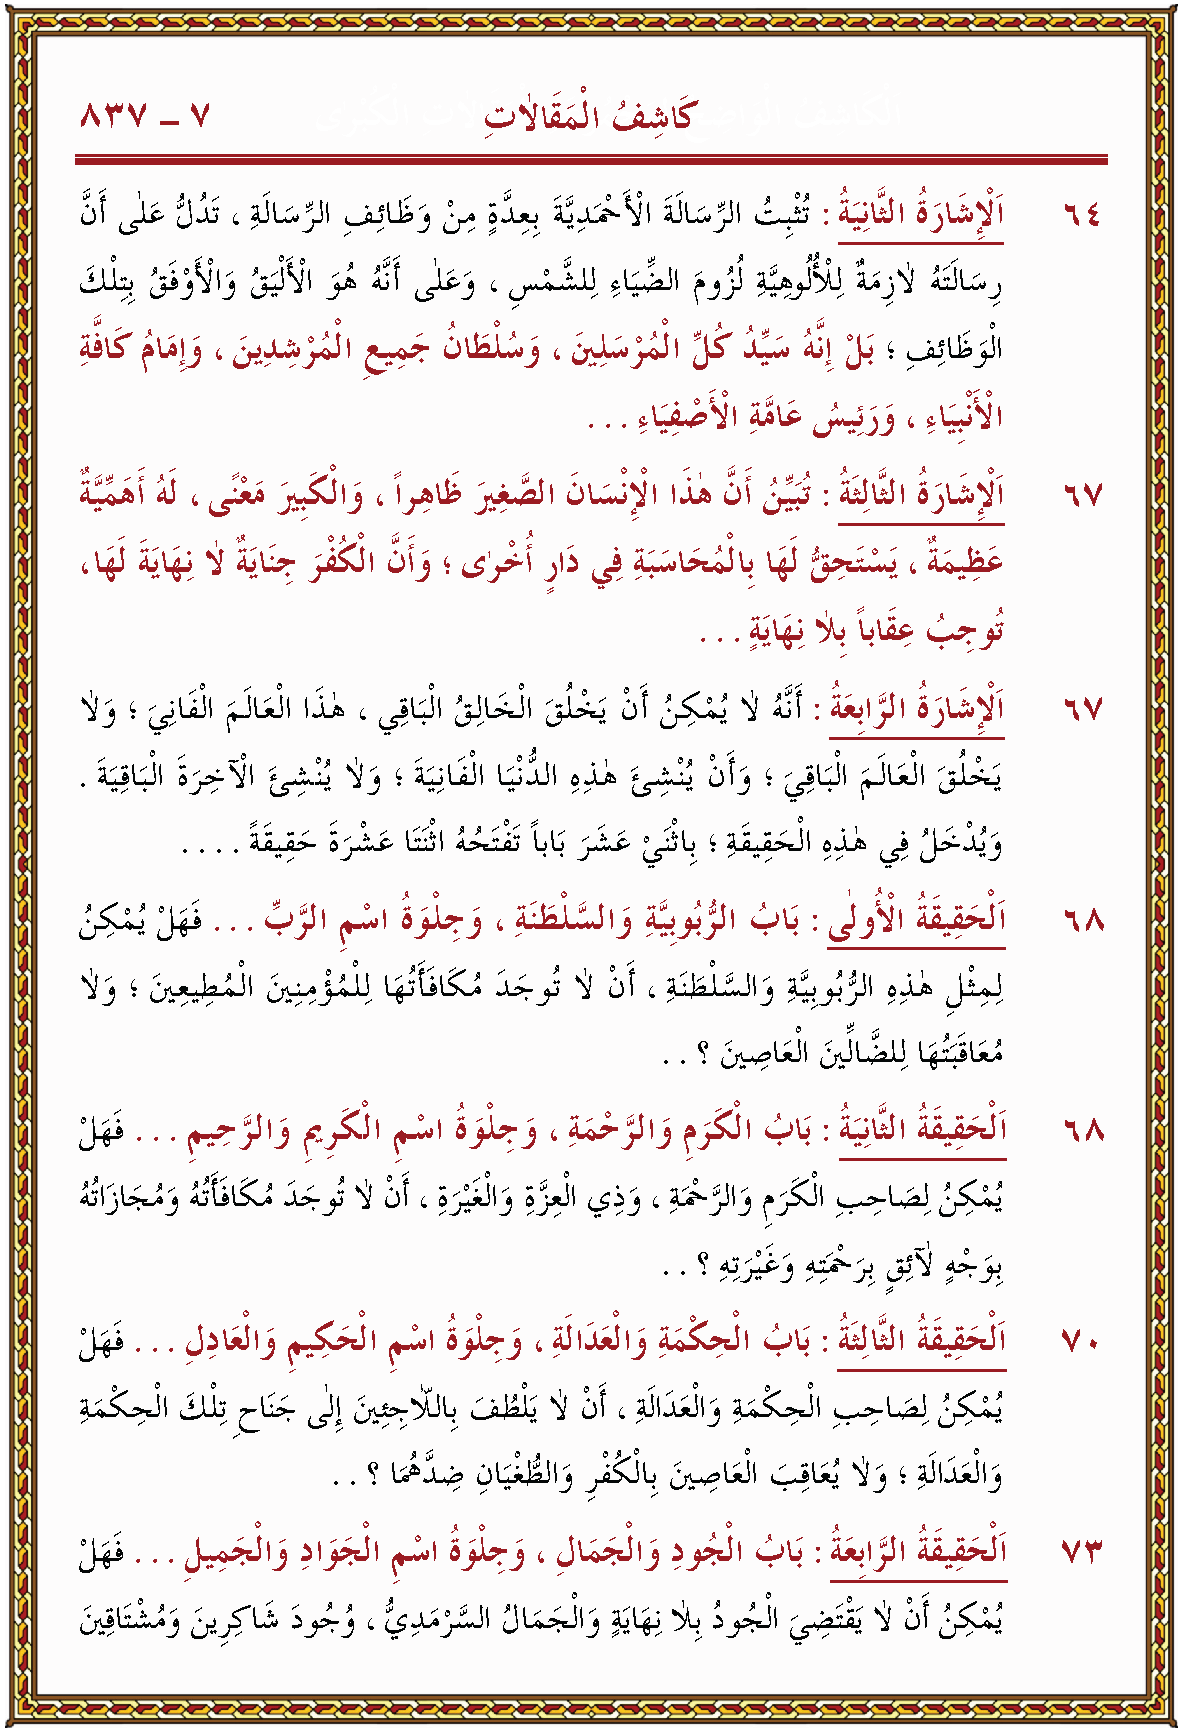 كَاشِفُ الْمَقَالاٰتِ ٧ ـ ٨٣٧
٦٤ اَلْإِشَارَةُ الثَّانِيَةُ : تُثْبِتُ الرِّسَالَةَ الْأَحْمَدِيَّةَ بِعِدَّةٍ مِنْ وَظَائِفِ الرِّسَالَةِ ، تَدُلُّ عَلٰى أَنَّ
رِسَالَتَهُ لاٰزِمَةٌ لِلْأُلُوهِيَّةِ لُزُومَ الضِّيَاءِ لِلشَّمْسِ ، وَعَلٰى أَنَّهُ هُوَ الْأَلْيَقُ وَالْأَوْفَقُ بِتِلْكَ
الْوَظَائِفِ ؛ بَلْ إِنَّهُ سَيِّدُ كُلِّ الْمُرْسَلِينَ ، وَسُلْطَانُ جَمِيعِ الْمُرْشِدِينَ ، وَإِمَامُ كَافَّةِ
الْأَنْبِيَاءِ ، وَرَئِيسُ عَامَّةِ الْأَصْفِيَاءِ . . .
٦٧ اَلْإِشَارَةُ الثَّالِثَةُ : تُبَيِّنُ أَنَّ هٰذَا الْإِنْسَانَ الصَّغِيرَ ظَاهِراً ، وَالْكَبِيرَ مَعْنًى ، لَهُ أَهَمِّيَّةٌ
عَظِيمَةٌ ، يَسْتَحِقُّ لَهَا بِالْمُحَاسَبَةِ فِي دَارٍ أُخْرٰى ؛ وَأَنَّ الْكُفْرَ جِنَايَةٌ لاٰ نِهَايَةَ لَهَا ،
تُوجِبُ عِقَاباً بِلاٰ نِهَايَةٍ . . .
٦٧ اَلْإِشَارَةُ الرَّابِعَةُ : أَنَّهُ لاٰ يُمْكِنُ أَنْ يَخْلُقَ الْخَالِقُ الْبَاقِي ، هٰذَا الْعَالَمَ الْفَانِيَ ؛ وَلاٰ
يَخْلُقَ الْعَالَمَ الْبَاقِيَ ؛ وَأَنْ يُنْشِئَ هٰذِهِ الدُّنْيَا الْفَانِيَةَ ؛ وَلاٰ يُنْشِئَ الْآخِرَةَ الْبَاقِيَةَ .
وَيُدْخَلُ فِي هٰذِهِ الْحَقِيقَةِ ؛ بِاثْنَيْ عَشَرَ بَاباً تَفْتَحُهُ اثْنَتَا عَشْرَةَ حَقِيقَةً . . . .
٦٨ اَلْحَقِيقَةُ الْأُولٰى : بَابُ الرُّبُوبِيَّةِ وَالسَّلْطَنَةِ ، وَجِلْوَةُ اسْمِ الرَّبِّ . . . فَهَلْ يُمْكِنُ
لِمِثْلِ هٰذِهِ الرُّبُوبِيَّةِ وَالسَّلْطَنَةِ ، أَنْ لاٰ تُوجَدَ مُكَافَأَتُهَا لِلْمُؤْمِنِينَ الْمُطِيعِينَ ؛ وَلاٰ
مُعَاقَبَتُهَا لِلضَّالِّينَ الْعَاصِينَ ؟ . .
٦٨ اَلْحَقِيقَةُ الثَّانِيَةُ : بَابُ الْكَرَمِ وَالرَّحْمَةِ ، وَجِلْوَةُ اسْمِ الْكَرِيمِ وَالرَّحِيمِ . . . فَهَلْ
يُمْكِنُ لِصَاحِبِ الْكَرَمِ وَالرَّحْمَةِ ، وَذِي الْعِزَّةِ وَالْغَيْرَةِ ، أَنْ لاٰ تُوجَدَ مُكَافَأَتُهُ وَمُجَازَاتُهُ
بِوَجْهٍ لاٰئِقٍ بِرَحْمَتِهِ وَغَيْرَتِهِ ؟ . .
٧٠ اَلْحَقِيقَةُ الثَّالِثَةُ : بَابُ الْحِكْمَةِ وَالْعَدَالَةِ ، وَجِلْوَةُ اسْمِ الْحَكِيمِ وَالْعَادِلِ . . . فَهَلْ
يُمْكِنُ لِصَاحِبِ الْحِكْمَةِ وَالْعَدَالَةِ ، أَنْ لاٰ يَلْطُفَ بِاللّاٰجِئِينَ إِلٰى جَنَاحِ تِلْكَ الْحِكْمَةِ
وَالْعَدَالَةِ ؛ وَلاٰ يُعَاقِبَ الْعَاصِينَ بِالْكُفْرِ وَالطُّغْيَانِ ضِدَّهُمَا ؟ . .
٧٣ اَلْحَقِيقَةُ الرَّابِعَةُ : بَابُ الْجُودِ وَالْجَمَالِ ، وَجِلْوَةُ اسْمِ الْجَوَادِ وَالْجَمِيلِ . . . فَهَلْ
يُمْكِنُ أَنْ لاٰ يَقْتَضِيَ الْجُودُ بِلاٰ نِهَايَةٍ وَالْجَمَالُ السَّرْمَدِيُّ ، وُجُودَ شَاكِرِينَ وَمُشْتَاقِينَ